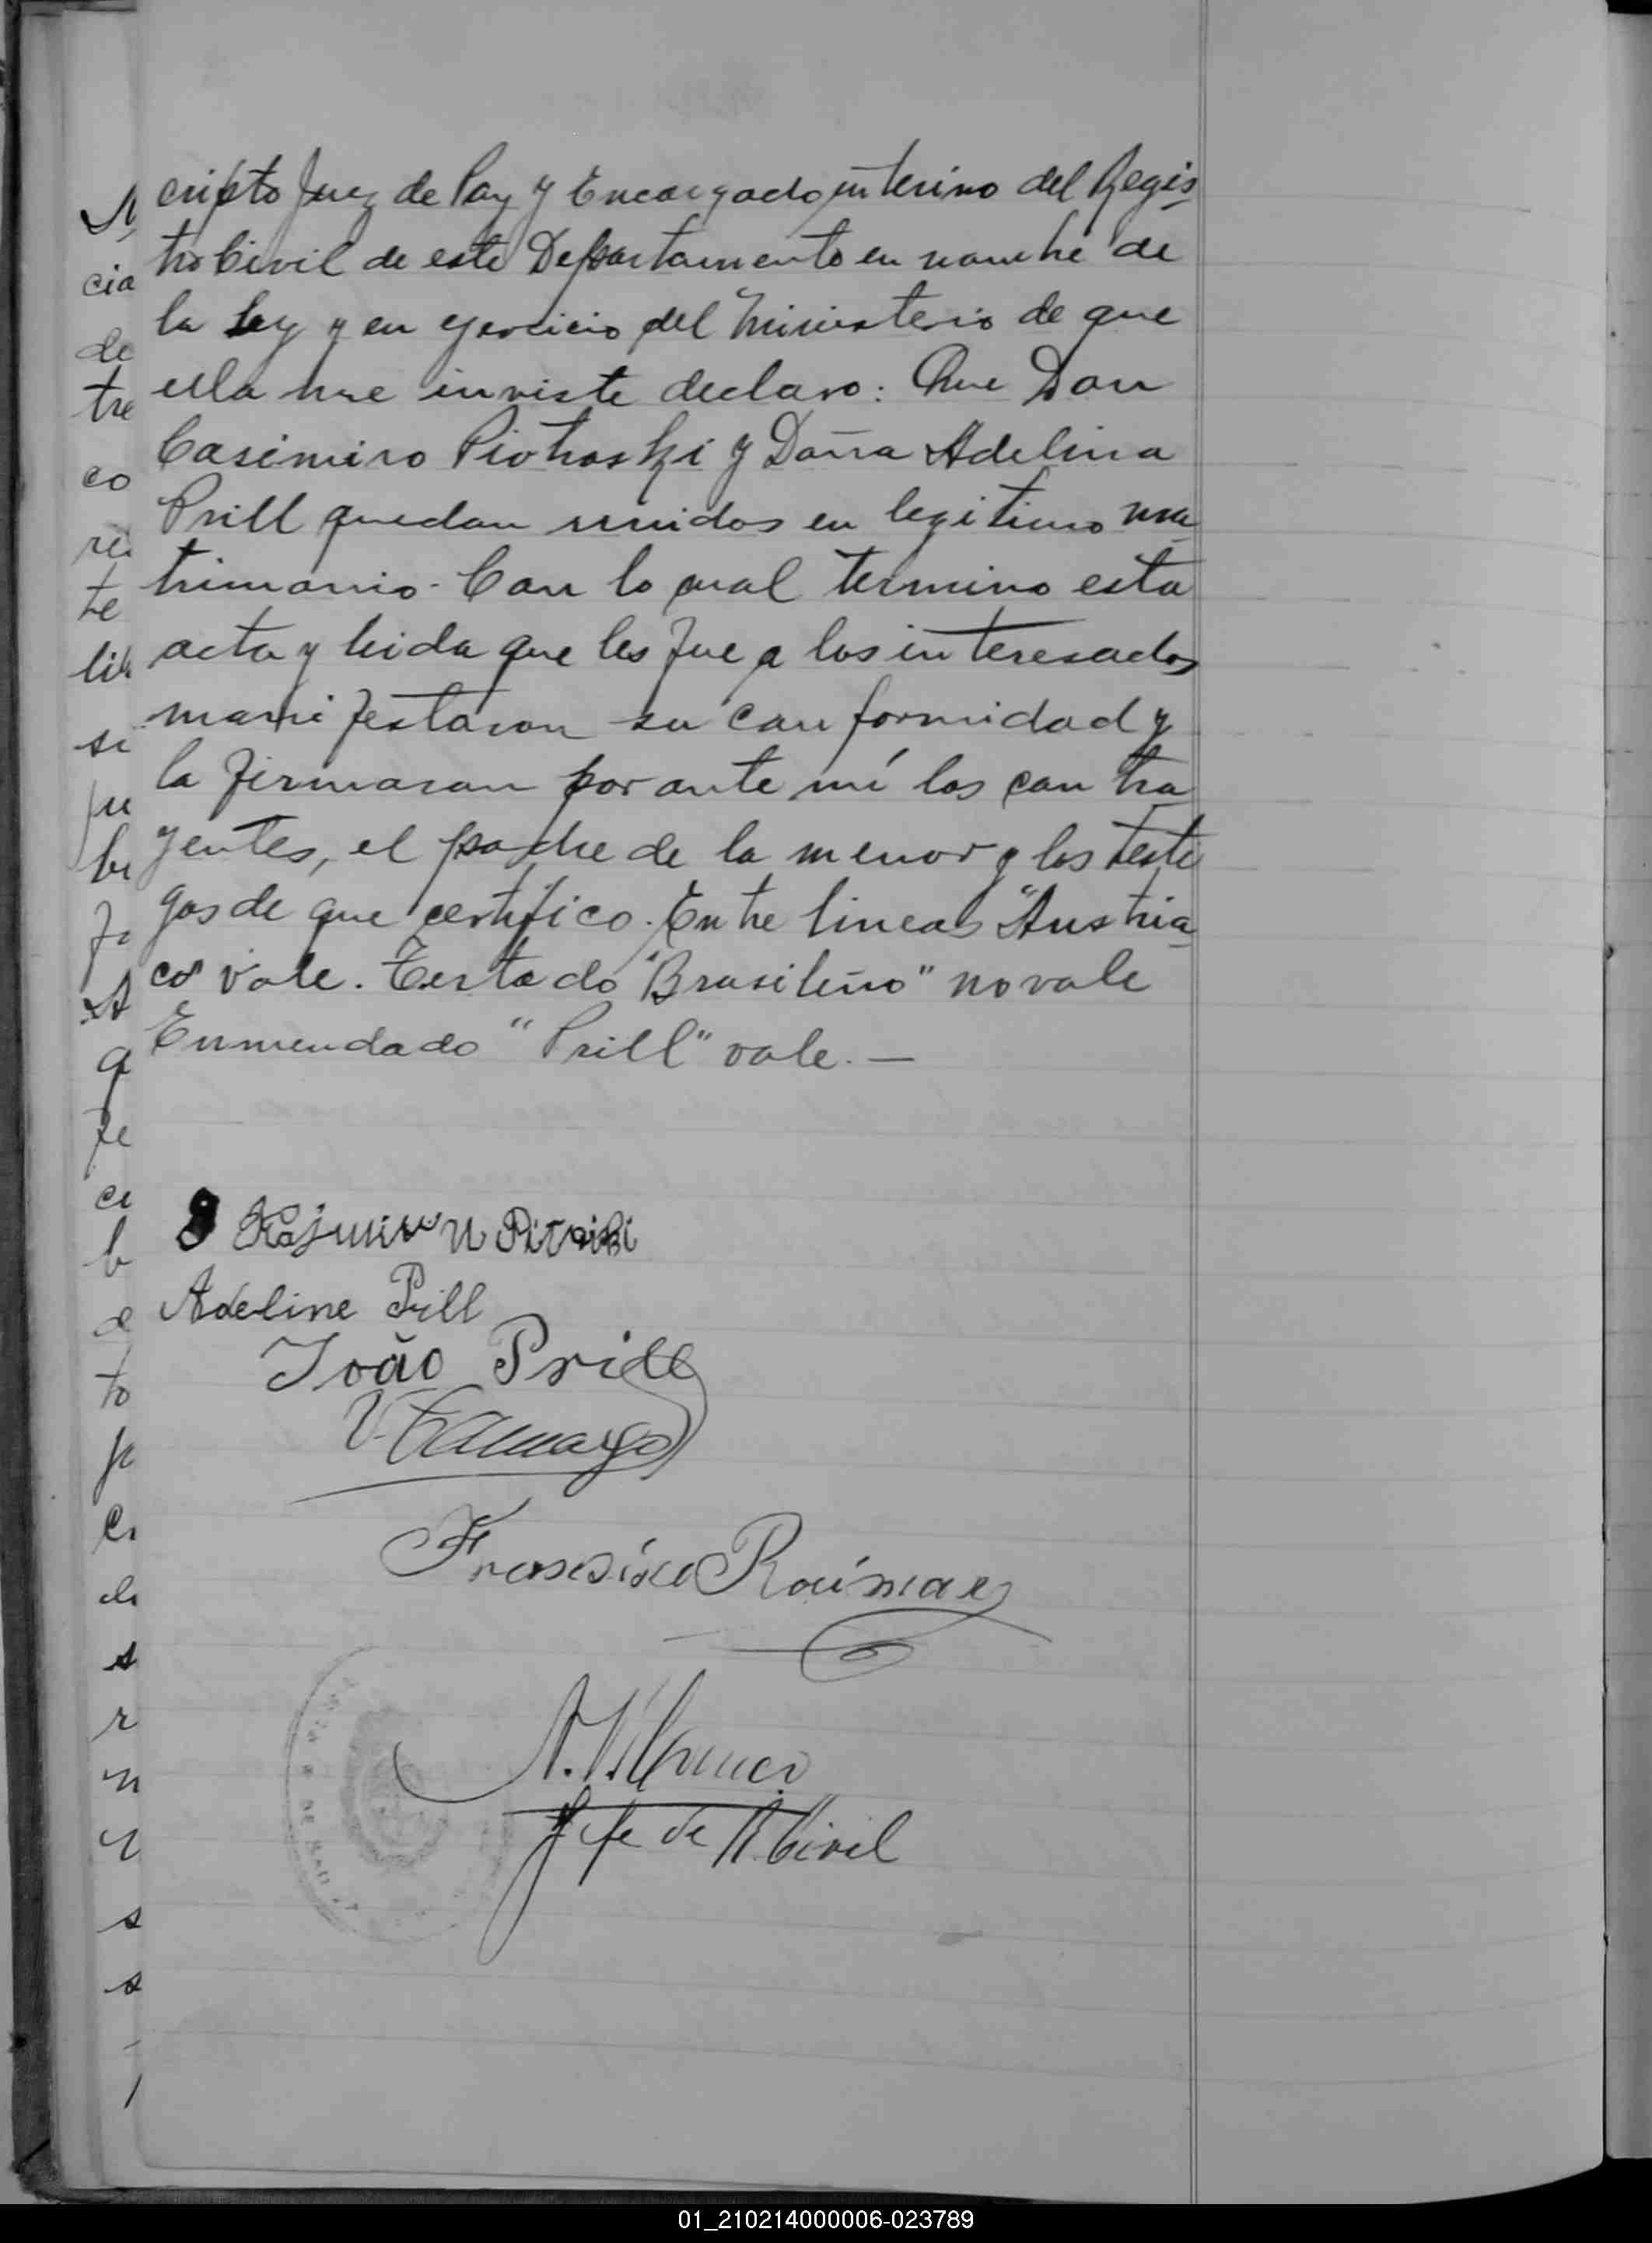 cripto Juez de Paz y Encargado interino del Regis
tro Civil de este Departamento en nombre de
la Ley y en ejercicio del Ministerio de que
ella me inviste declaro: Que Don
Casimiro Piotroski y Doña Adelina
Prill quedan unidos en legitimo ma
trimonio. Con lo cual termino esta
acta y leida que les fue a los interesados
manifestaron su conformidad y
la firmaron por ante mí los contra
yentes, el padre de la menor y los testi
gos de que certifico. Entre lineas "Austria
co" vale. Testado "Brasileño" no vale
Enmendado "Prill" vale. —
Adeline Prill
João Prill
Francisco
Jefe de R. Civil
01_210214000006-023789